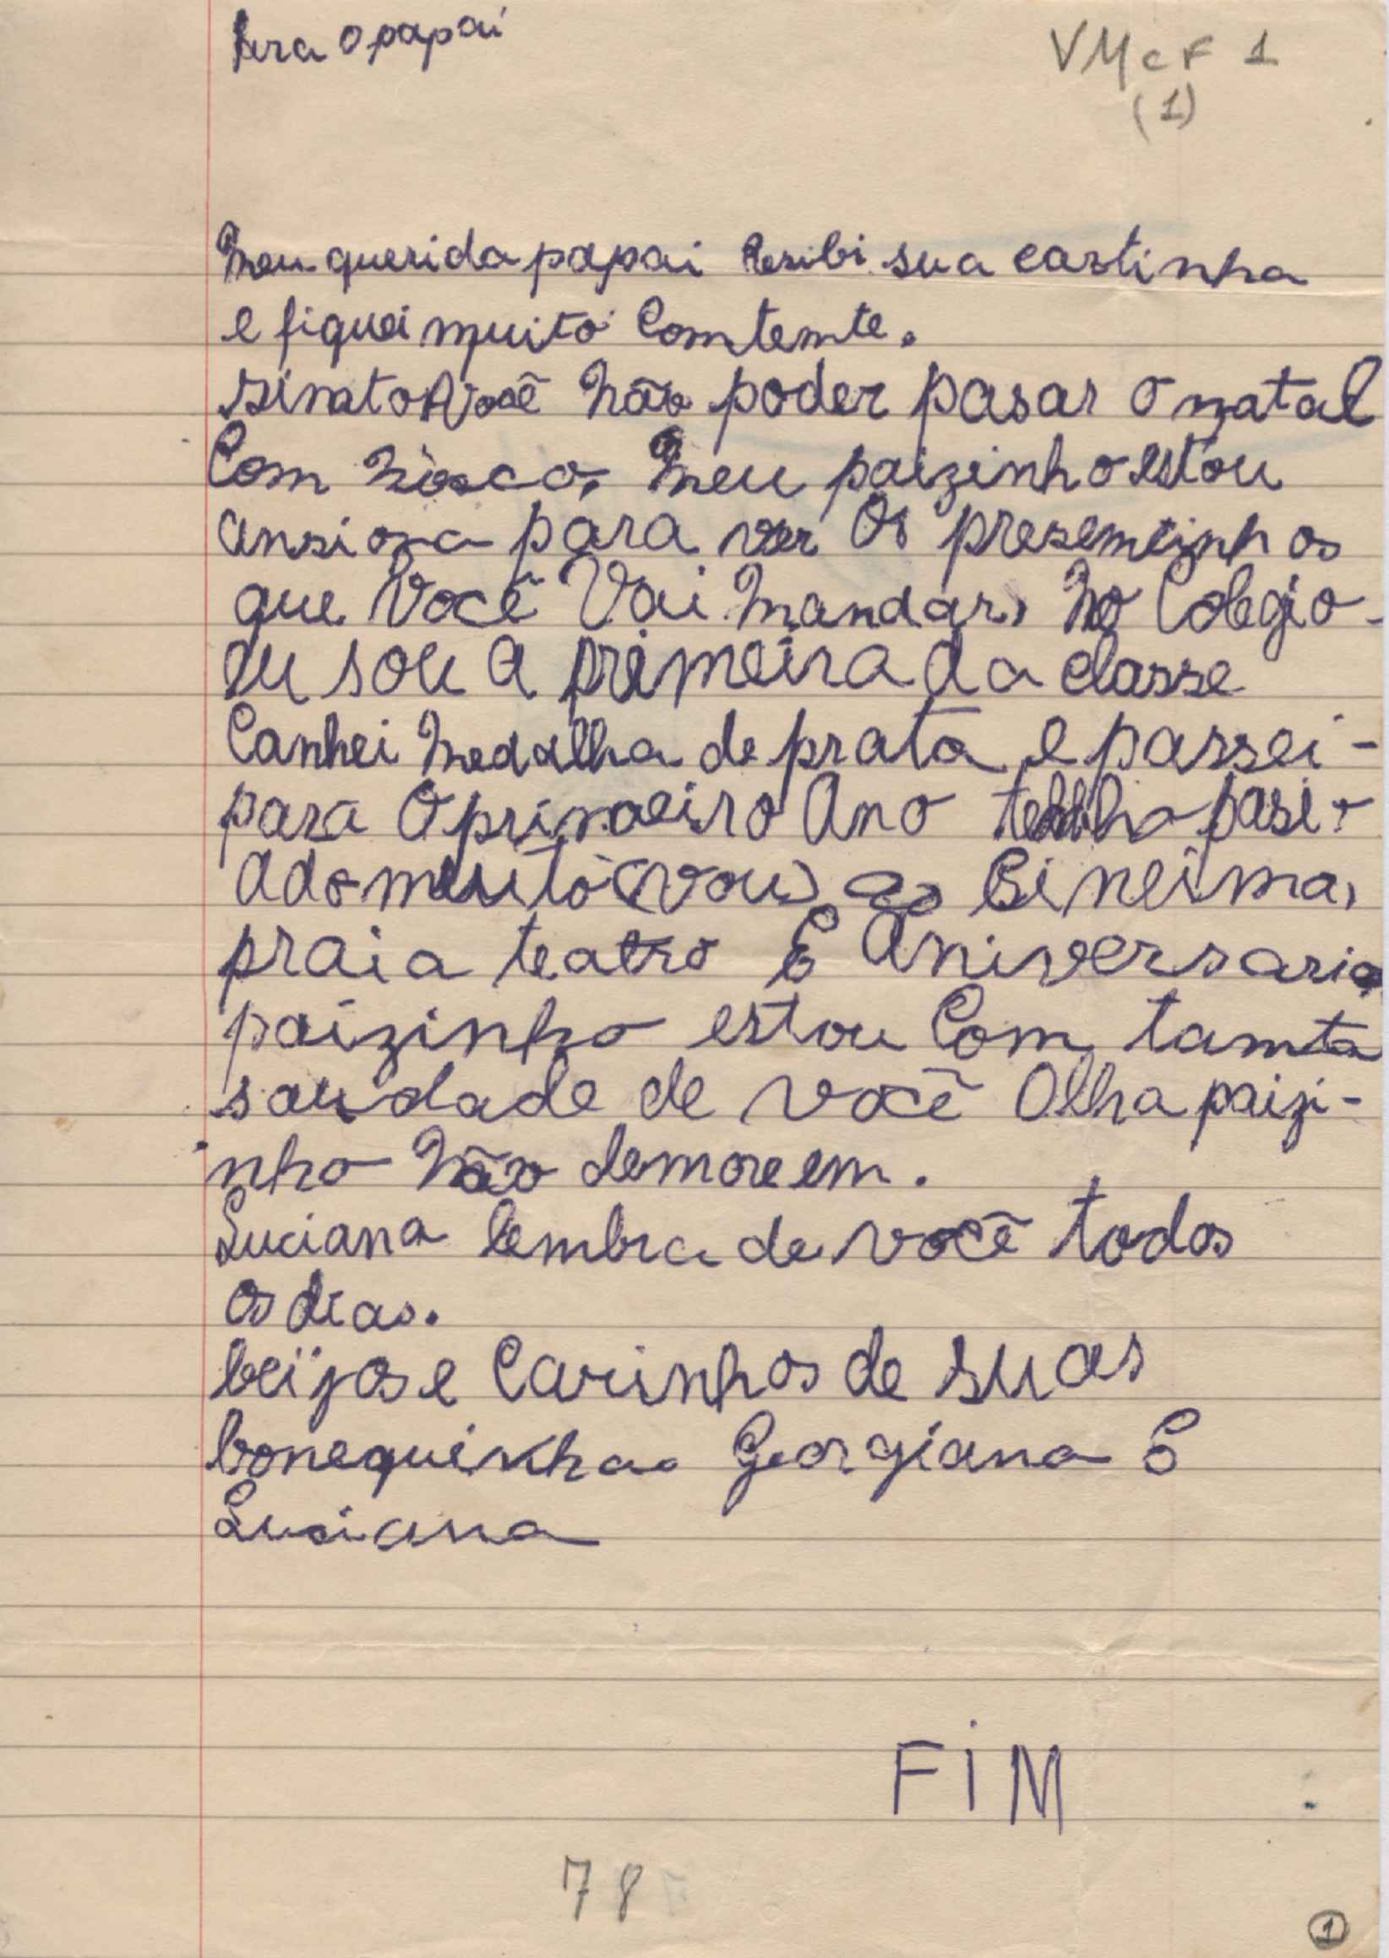 Para o papai
VMcF 1
(1)
Meu querida papai Resibi sua cartinha
e fiquei muito Comtemte.
sinato você não poder pasar o natal
Com nosco, Meu paizinho estou
ansiosa para ver Os presemtinhos
que Você Vai mandar, no Colegio
eu sou a primeira da classe
Canhei medalha de prata e passei-
para O primeiro Ano tenho pasi-
ado muito (vou) ao Cineima,
praia teatro E Aniversario
paizinho estou Com tamta
saudade de você Olha paizi-
nho não demore em.
Luciana lembra de você todos
os dias.
beijos e Carinhos de suas
bonequinhas Georgiana E
Luciana
FiM
78
1